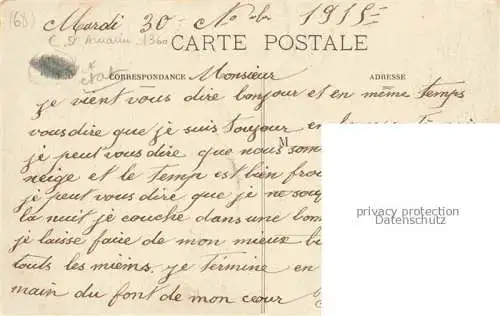 (68)
Mardi 30 Nobr 1915
C. St Amarin 1360
CARTE POSTALE
CORRESPONDANCE Monsieur ADRESSE
je vient vous dire bonjour et en même temps
vous dire que je suis toujour en
je peut vous dire que nous som M
neige et le temp est bien froi
je peut vous dire que je ne sou
la nuit je couche dans une bon
je laisse faire de mon mieux bi
touts les miens. je termine en
main du font de mon cœur
privacy protection
Datenschutz